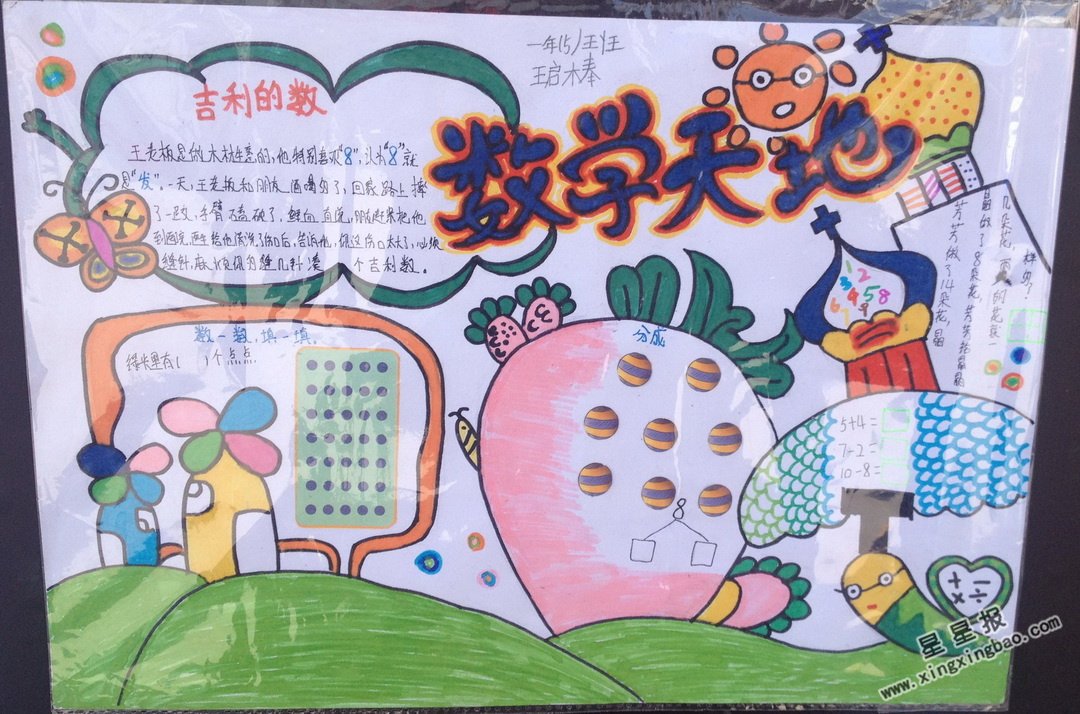 一年(5)班
王启木奉
数学天地
吉利的数
王老板是做木材生意的,他特别喜欢"8",认为"8"就
是"发"。一天,王老板和朋友 酒喝多了,回家路上 摔
了一跤,手臂 磕破了,鲜血直流,朋友赶紧把他
到医院,医生给他清洗了伤口后,告诉他,你这伤口太大了,必须
缝针,麻 你 缝几针 凑 个吉利数。
数一数,填一填。
绿卡里有( )个点点
分成
8
1
2
3
4
5
6
7
8
9
芳芳做了14朵花,晶
晶做了8朵花,芳芳给晶晶
几朵花,两人的花就一
样多?
5+4=
7-2=
10-8=
+ -
× ÷
星星报
www.xingxingbao.com